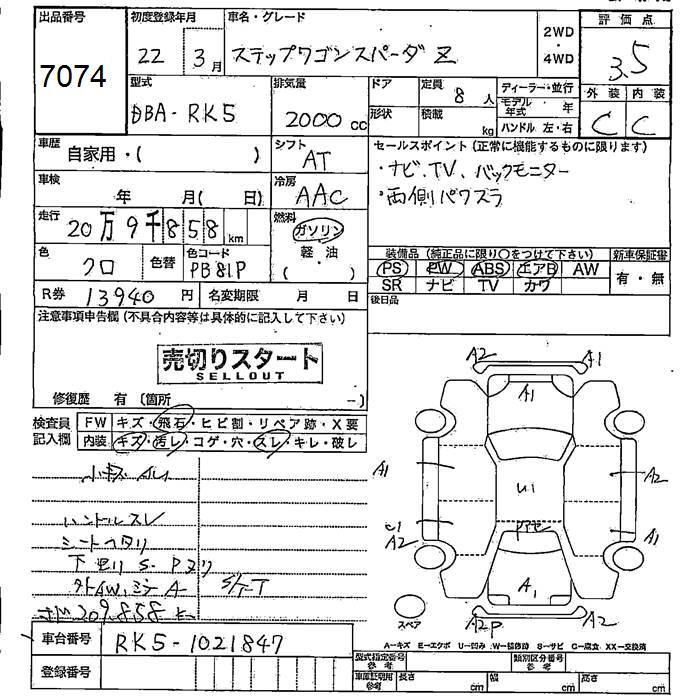 出品番号
7074
初度登録年月
22 3月
車名・グレード
ステップワゴンスパーダ Z
2WD
・
4WD
評価点
3.5
外装 内装
C C
型式
DBA-RK5
排気量
2000cc
ドア
形状
定員
8人
積載
kg
ディーラー・並行
モデル年式 年
ハンドル 左・右
車歴
自家用・( )
シフト
AT
車検
年 月( 日)
冷房
AAC
セールスポイント(正常に機能するものに限ります)
・ナビ、TV、バックモニター
・両側パワスラ
走行
20万9千858km
燃料
ガソリン
軽・油
( ・ )
色
クロ
色替
色コード
PB81P
装備品(純正品に限り○をつけて下さい)
PS PW ABS エアB AW
SR ナビ TV カワ
新車保証書
有・無
R券
13940円
名変期限 月 日
後日品
注意事項申告欄(不具合内容等は具体的に記入して下さい)
売切りスタート
SELLOUT
修復歴 有(箇所 -)
検査員
記入欄
FW キズ・飛石・ヒビ割・リペア跡・X要
内装 キズ・汚レ・コゲ・穴・スレ・キレ・破レ
ハンドルスレ
シートヘタリ
209,858
車台番号
RK5-1021847
登録番号
A2 A1
A1
A1
A2
U1
U1
A2
A1
A1
A2P A2
スペア
A-キズ E-エクボ U-凹み W-補修跡 S-サビ C-腐食 XX-交換済
型式指定番号
参考
類別区分番号
参考
車庫証明用
参考
長さ cm
幅 cm
高さ cm